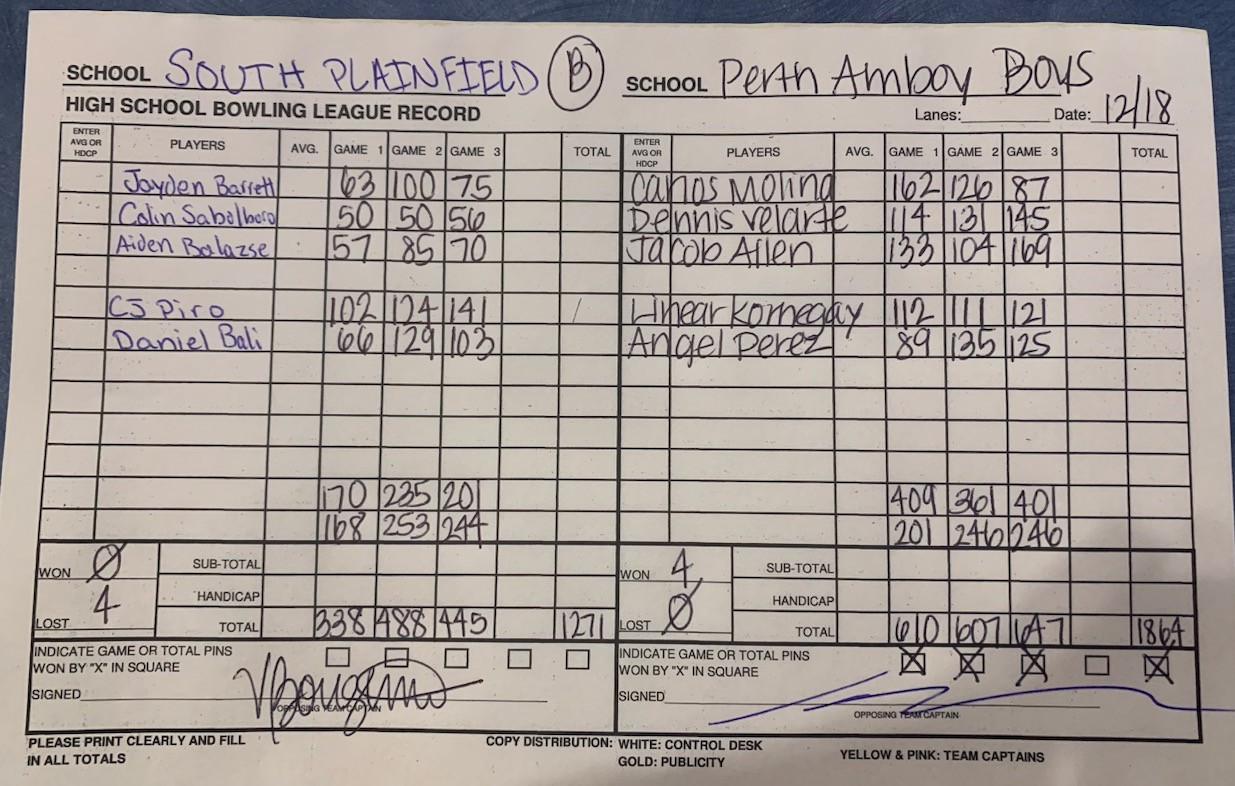 SCHOOL SOUTH PLAINFIELD (B) SCHOOL Perth Amboy Boys
HIGH SCHOOL BOWLING LEAGUE RECORD Lanes: Date: 12/18
ENTER AVG OR HDCP PLAYERS AVG. GAME 1 GAME 2 GAME 3 TOTAL ENTER AVG OR HDCP PLAYERS AVG. GAME 1 GAME 2 GAME 3 TOTAL
Jayden Barrett 63 100 75 Carlos Molina 162 126 87
Colin 50 50 56 Dennis Velarte 114 131 145
Aiden Balazse 57 85 70 Jacob Allen 133 104 169
CJ Piro 102 124 141 Linear Kornegay 112 111 121
Daniel Bali 66 129 103 Angel Perez 89 135 125
170 235 201 409 361 401
168 253 244 201 246 246
WON 0 SUB-TOTAL WON 4 SUB-TOTAL
HANDICAP HANDICAP
LOST 4 TOTAL 338 488 445 1271 LOST 0 TOTAL 610 607 647 1864
INDICATE GAME OR TOTAL PINS INDICATE GAME OR TOTAL PINS
WON BY "X" IN SQUARE WON BY "X" IN SQUARE X X X X
SIGNED SIGNED
OPPOSING TEAM CAPTAIN OPPOSING TEAM CAPTAIN
PLEASE PRINT CLEARLY AND FILL COPY DISTRIBUTION: WHITE: CONTROL DESK YELLOW & PINK: TEAM CAPTAINS
IN ALL TOTALS GOLD: PUBLICITY